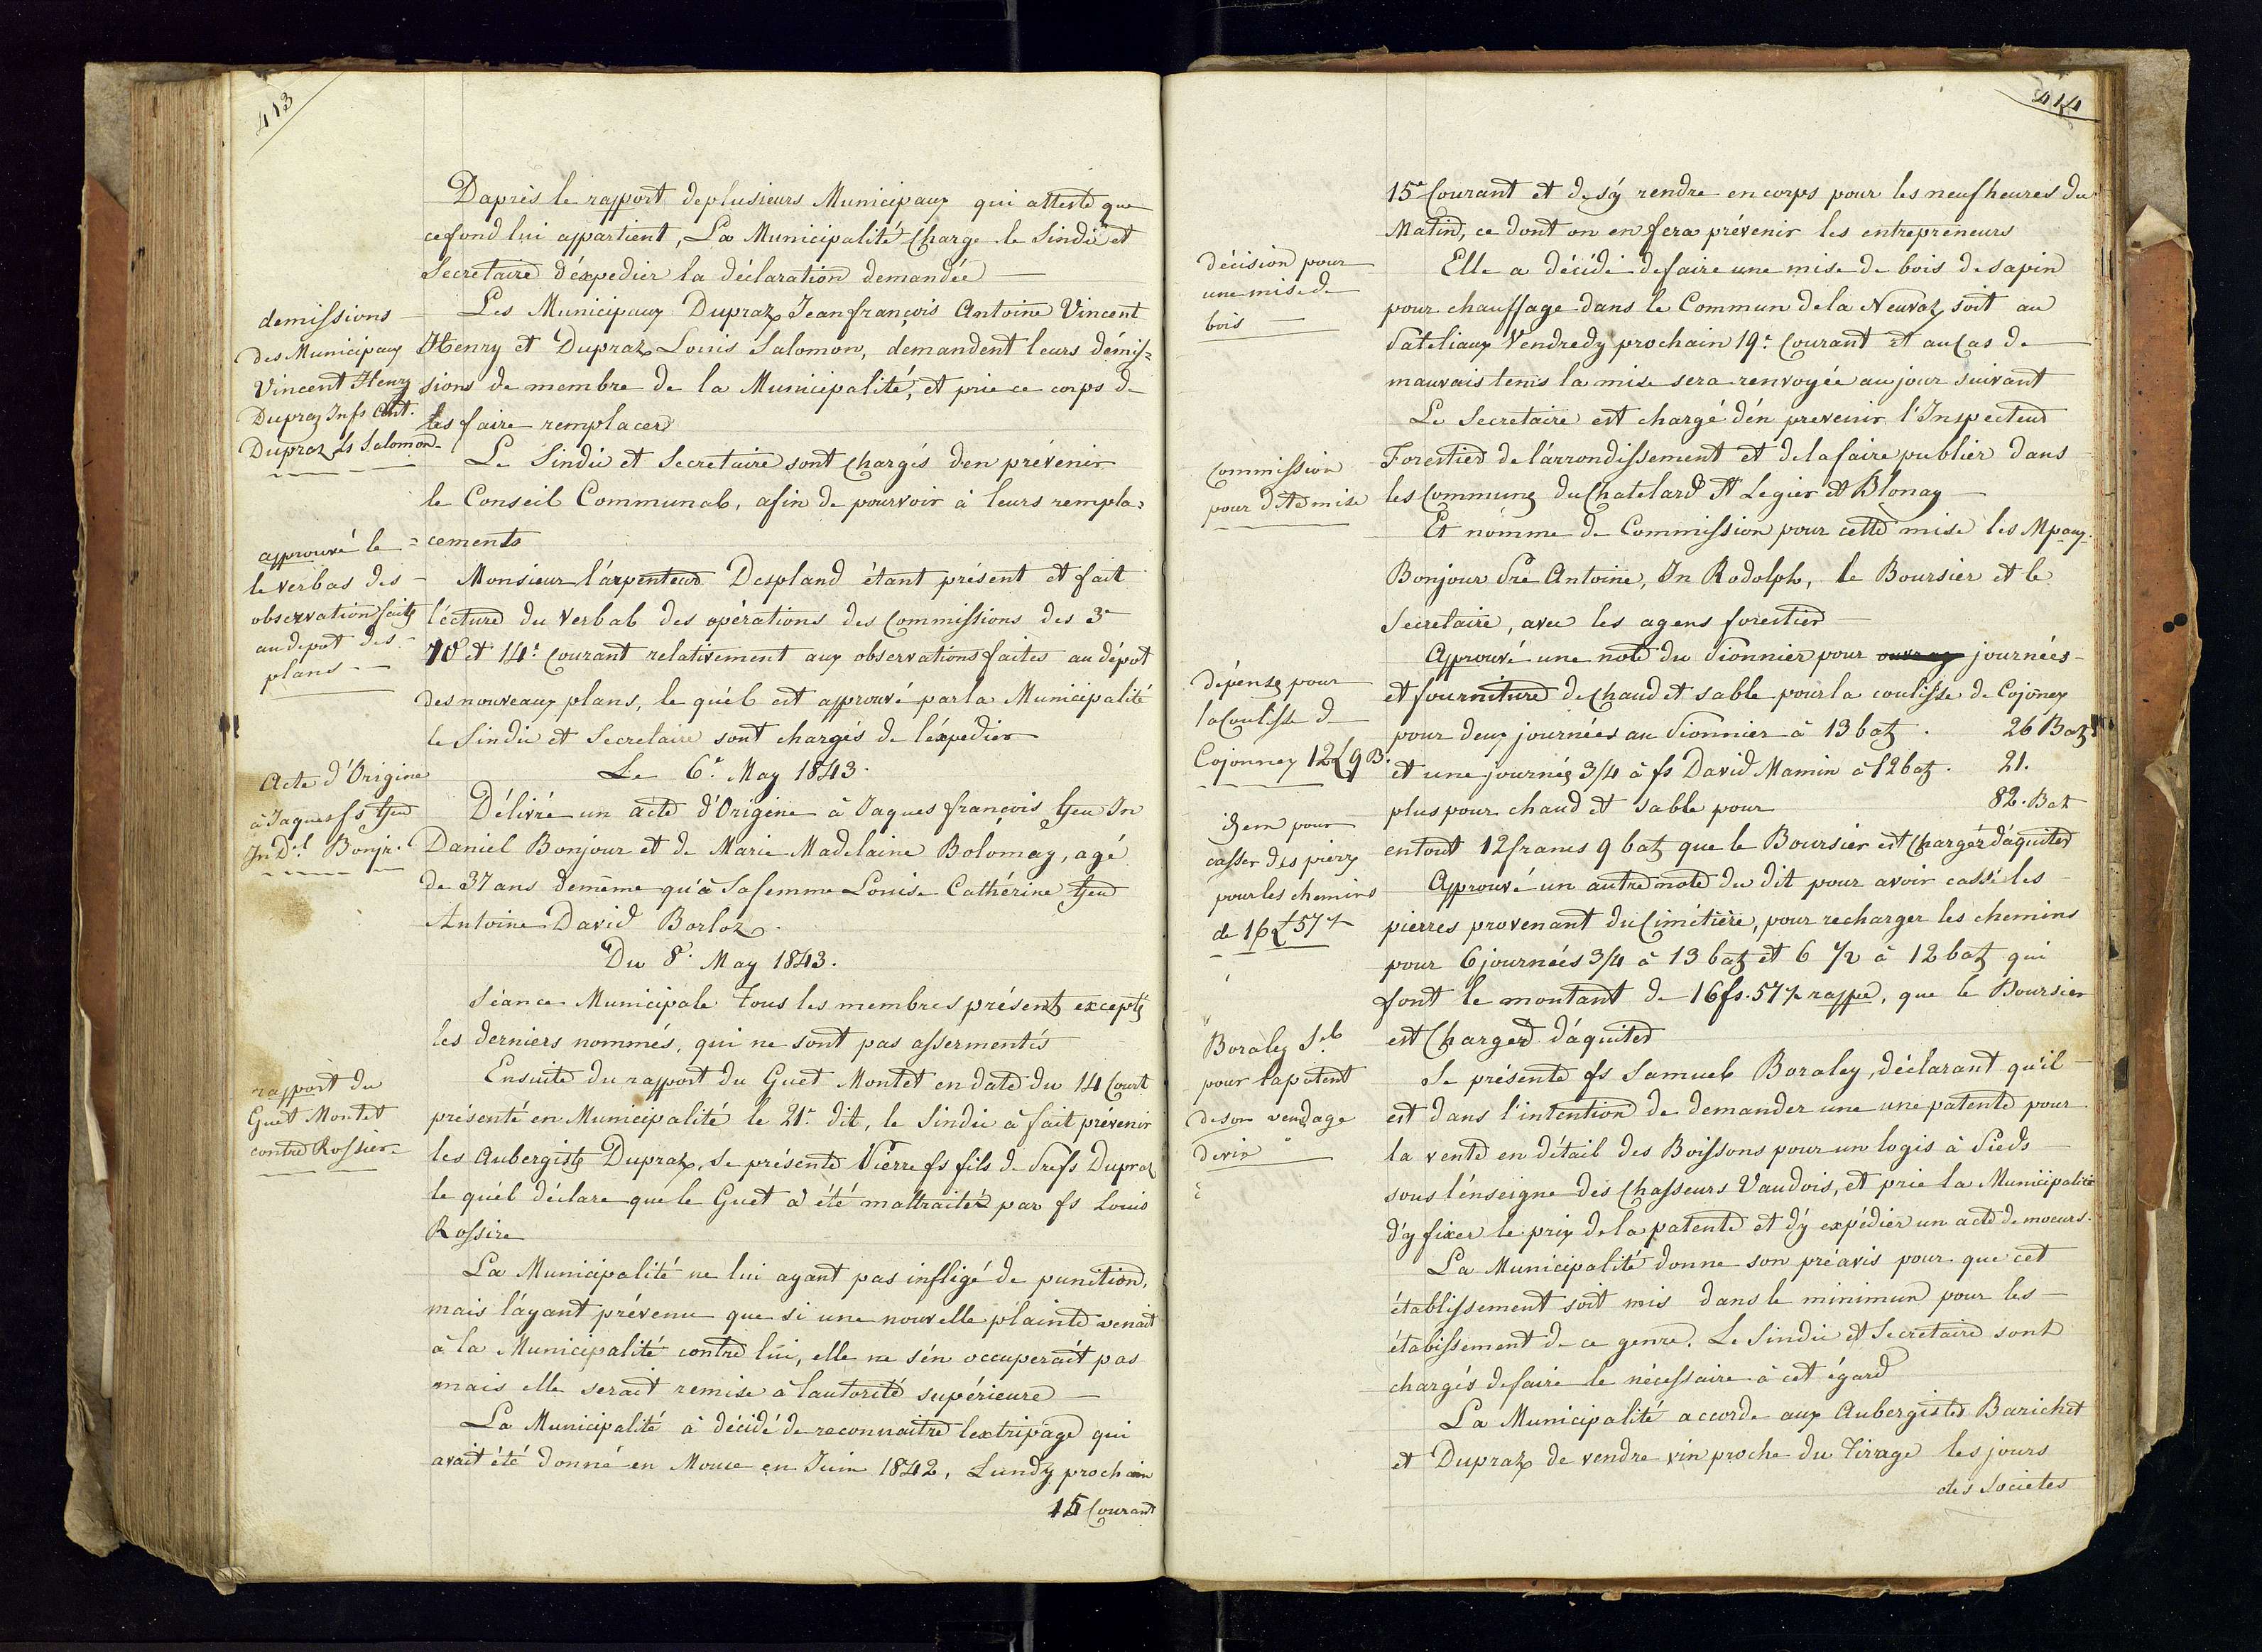 413
Daprès le rapport deplusieurs Municipaux qui atteste que
cefond lui appartient, La Municipalité Charge le Sindic et
Secretaire d'éxpedier la déclaration demandée
demissions
des Municipaux
Vincent Henry
Dupraz Jnfs Ant.
Dupraz Ls Salomon
Les Municipaux Dupraz Jean françois Antoine Vincent
Henry et Dupraz Louis Salomon, demandent leurs démis=
sions de membre de la Municipalité, et prie ce corps de
les faire remplacer
Le Sindic et Secretaire sont Chargés d'en prévenir
le Conseil Communal, afin de pourvoir à leurs rempla=
=cements
approuvé le
le verbas des
observation faites
au depot des
plans
Monsieur l'arpenteur Despland étant présent et fait
lécture du verbal des opérations des Commissions des 3e
10 et 14e Courant relativement aux observations faites au dépot
des nouveaux plans, le quél est approuvé par la Municipalité
le Sindic et Secretaire sont chargés de l'éxpedier
Le 6e May 1843.
Acte d'Origine
à Jaques fs feu
Jn Del Bonjr.
Délivré un acte d'Origine à Jaques françois feu Jn
Daniel Bonjour et de Marie Madelaine Bolomay, agé
de 37 ans demême qu'à Safemme Louise Cathérine feu
Antoine David Borloz.
Du 8e May 1843.
Séance Municipale Tous les membres présents excepté
les derniers nommés, qui ne sont pas assermentés
rapport du
Guet Montet
contre Rossier
Ensuite du rapport du Guet Montet en date du 14 Court
présenté en Municipalité le 21e dit, le Sindic à fait prévenir
les Aubergiste Dupraz, se présente Pierre fs fils de Prefs Dupraz
le quél déclare que le Guet à été maltraitér par fs Louis
Rossire
La Municipalité ne lui ayant pas infligé de punition,
mais l'ayant prévenu que si une nouvelle plainte venait
à la Municipalité contre lui, elle ne s'én occuperait pas
mais elle serait remise à l'autorité supérieure
La Municipalité à décidé de reconnaitre lextripage qui
avait été donné en Mouce en Juin 1842, Lundy prochain
15 Courant
414
15e Courant et de s'y rendre en corps pour les neuf heures du
Matin, ce dont on en fera prévenir les entrepreneurs
décision pour
une mise de
bois
Elle a décidé defaire une mise de bois de sapin
pour chauffage dans le Commun dela Neuvaz soit au
Pateliaux Vendredy prochain 19e Courant et au Cas de
mauvais tems la mise sera renvoyée au jour suivant
Le Secretaire est chargé dén prevenir l'Inspecteur
Forestier de l'arrondissement et de la faire publier dans
les Communes du Chatelard St Legier et Blonay
Commission
pour dte mise
Et nomme de Commission pour cette mise les Mpaux
Bonjour Pre Antoine, Jn Rodolph, le Boursier et le
Secretaire, avec les agens forestier
dépense pour
la Coulisse de
Cojonney 12£ 9 B.
Approuvé une note du Pionnier pour ouvrag journées
et fourniture de chaud et sable pour la coulisse de Cojoney
pour deux journées au Pionnier à 13 batz . 26 Batz
et une journée 3/4 à fs David Mamin à 12 batz . 21.
plus pour chaud et sable pour 82. Batz
entout 12 francs 9 batz que le Boursier est Chargér dáquiter
idem pour
casser des pierre
pour les chemins
de 16£ 57½
Approuvé un autre note du dit pour avoir cassé les
pierres provenant du Cimétière, pour recharger les chemins
pour 6 journées 3/4 à 13 batz et 6 1/2 à 12 batz qui
font le montant de 16 fs. 57½ rappe, que le Boursier
est Charger dáquiter
Boraley Sel
pour la patent
deson vendage
devin
Se présente fs Samuel Boraley, déclarant qu'il
est dans l'intention de demander une une patente pour
la vente en détail des Boissons pour un logis à Pieds
sous l'énseigne des Chasseurs Vaudois, et prie la Municipalité
d'y fixer le prix de la patente et d'y expédier un acte de moeurs.
La Municipalité donne son préavis pour que cet
établissement soit mis dans le minimun pour les
étabissement de ce genre. Le Sindic et Secretaire sont
chargés defaire le nécessaire à cet égard
La Municipalité accorde aux Aubergistes Barichet
et Dupraz de vendre vin proche du Tirage les jours
des Societes